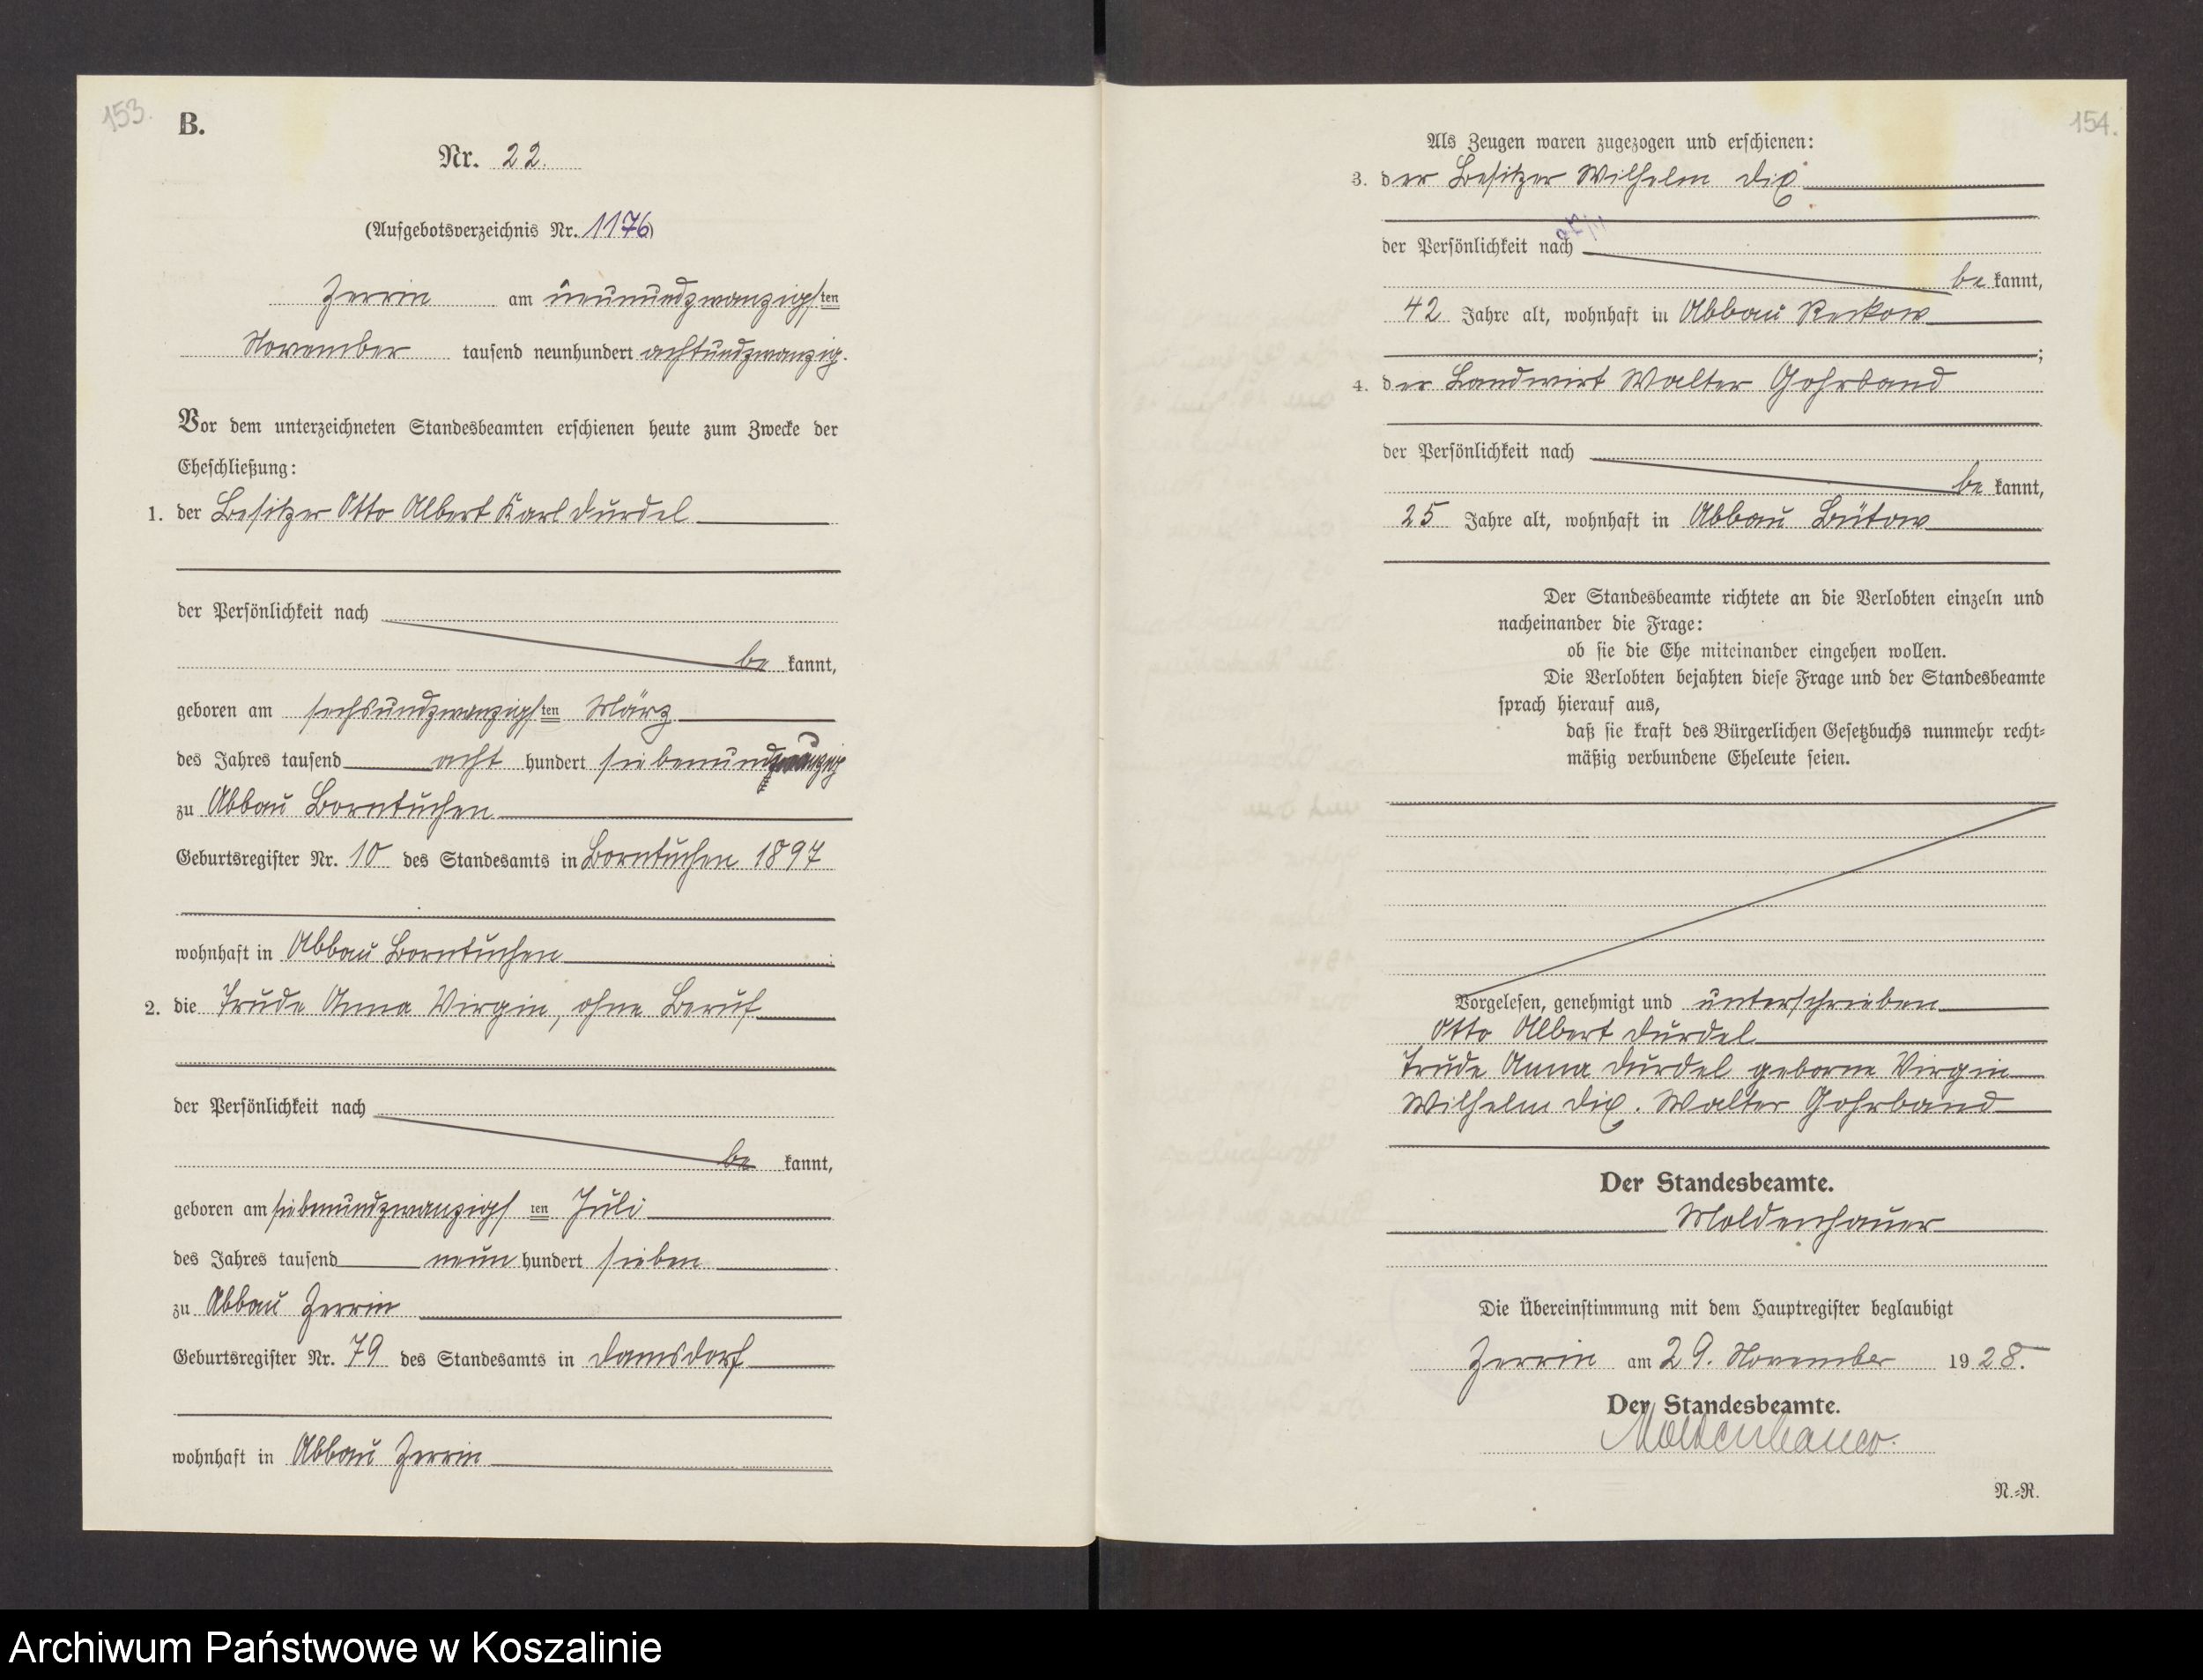 153.
B.
Nr. 22.
(Aufgebotsverzeichnis Nr. 1176)
Zerrin am neunundzwanzigsten
November tausend neunhundert achtundzwanzig.
Vor dem unterzeichneten Standesbeamten erschienen heute zum Zwecke der
Eheschließung:
1. der Besitzer Otto Albert Karl Durdel
der Persönlichkeit nach
be kannt,
geboren am sechsundzwanzigsten März
des Jahres tausend acht hundert siebenund
zu Abbau Borntuchen
Geburtsregister Nr. 10 des Standesamts in Borntuchen 1897
wohnhaft in Abbau Borntuchen ;
2. die Trude Anna Virgin, ohne Beruf
der Persönlichkeit nach
be kannt,
geboren am siebenundzwanzigsten Juli
des Jahres tausend neun hundert sieben
zu Abbau Zerrin
Geburtsregister Nr. 79 des Standesamts in Damsdorf
wohnhaft in Abbau Zerrin
154.
Als Zeugen waren zugezogen und erschienen:
3. der Besitzer Wilhelm Dix
der Persönlichkeit nach
be kannt,
42 Jahre alt, wohnhaft in Abbau Reckow
;
4. der Landwirt Walter Gohrband
der Persönlichkeit nach
be kannt,
25 Jahre alt, wohnhaft in Abbau Bütow
Der Standesbeamte richtete an die Verlobten einzeln und
nacheinander die Frage:
ob sie die Ehe miteinander eingehen wollen.
Die Verlobten bejahten diese Frage und der Standesbeamte
sprach hierauf aus,
daß sie kraft des Bürgerlichen Gesetzbuchs nunmehr recht-
mäßig verbundene Eheleute seien.
Vorgelesen, genehmigt und unterschrieben
Otto Albert Durdel
Trude Anna Durdel geborne Virgin
Wilhelm Dix. Walter Gohrband
Der Standesbeamte.
Moldenhauer
Die Übereinstimmung mit dem Hauptregister beglaubigt
Zerrin am 29. November 1928.
Der Standesbeamte.
Moldenhauer.
N.-R.
Archiwum Państwowe w Koszalinie